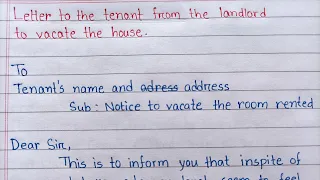 Letter to the tenant from the landlord
to vacate the house.
To
Tenant's name and adress address
Sub : Notice to vacate the room rented
Dear Sir,
This is to inform you that inspite of